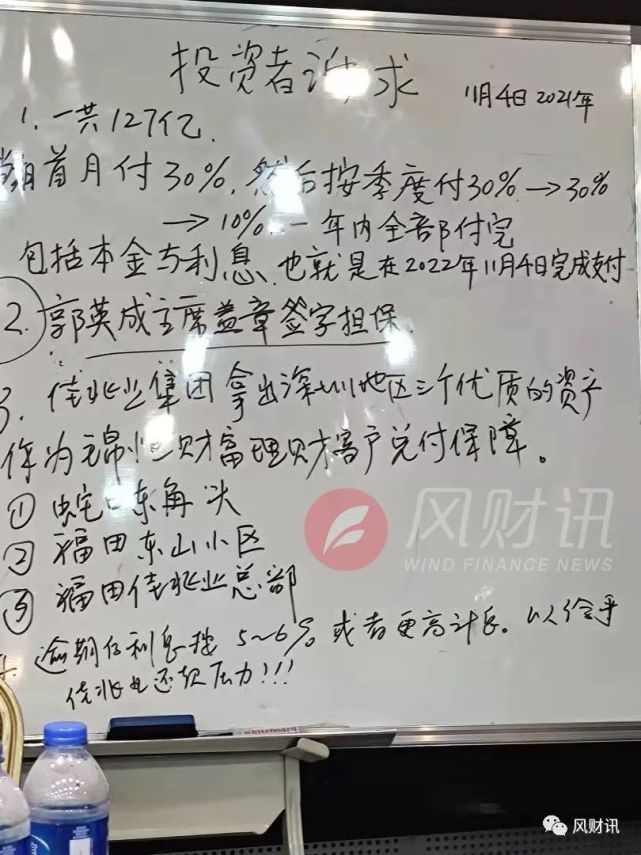 投资者诉求
11月4日 2021年
1. 一共127亿.
首月付30%, 然后按季度付30% → 30%
→ 10%. 一年内全部付完
包括本金与利息. 也就是在2022年11月4日完成支付
2. 郭英成主席盖章签字担保.
3. 佳兆业集团拿出深圳地区三个优质的资产
作为锦恒财富理财客户兑付保障。
① 蛇口东角头
② 福田东山小区
③ 福田佳兆业总部
逾期 利息按 5~6% 或者更高计息。以给予
佳兆业还款压力!!!
whiteboard
风财讯
WIND FINANCE NEWS
风财讯